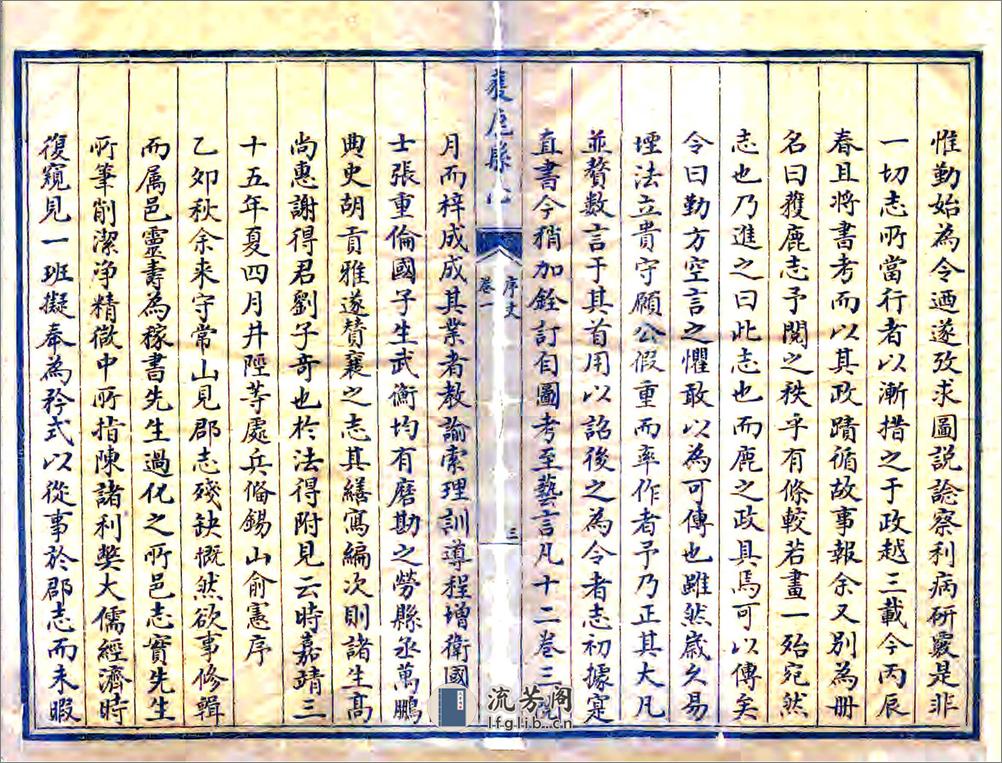 惟勤始為令迺遂攷求圖説諗察利病研覈是非
一切志所當行者以漸措之于政越三載今丙辰
春且將書考而以其政蹟循故事報余又別為冊
名曰穫鹿志予閲之秩乎有條較若畫一殆宛然
志也乃進之曰此志也而鹿之政具焉可以傳矣
令曰勤方空言之懼敢以為可傳也雖然歲久易
堙法立貴守願公假重而率作者予乃正其大凡
並贅數言于其首用以詔後之為令者志初據寔
直書今稍加銓訂自圖考至藝言凡十二卷三
縣
序文
卷一
三
月而梓成成其業者教諭索理訓導程增衛國
士張重倫國子生武衡均有磨勘之勞縣丞萬鵬
典史胡貢雅遂賛襄之志其繕寫編次則諸生高
尚惠謝得君劉子奇也於法得附見云時嘉靖三
十五年夏四月井陘等處兵備錫山俞憲序
乙卯秋余来守常山見郡志殘缺慨然欲事修輯
而属邑靈壽為稼書先生過化之所邑志實先生
所筆削潔浄精微中所指陳諸利獘大儒經濟時
復窺見一班擬奉為矜式以從事於郡志而未暇
流芳阁
lfglib.cn